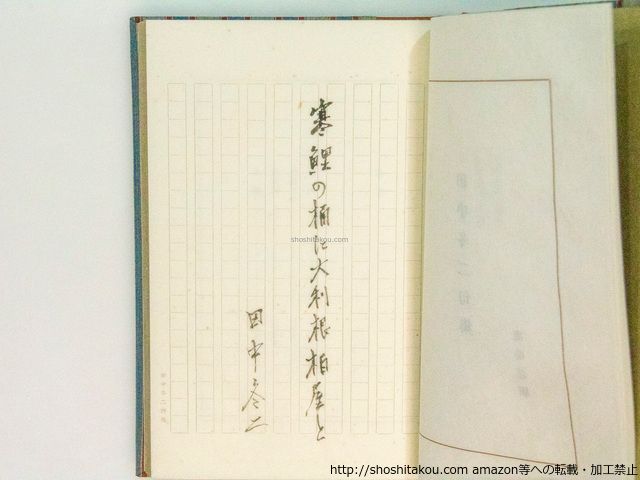 寒鯉の桶に大利根柏屋と
田中冬二
shoshitakou.com
http://shoshitakou.com amazon等への転載・加工禁止